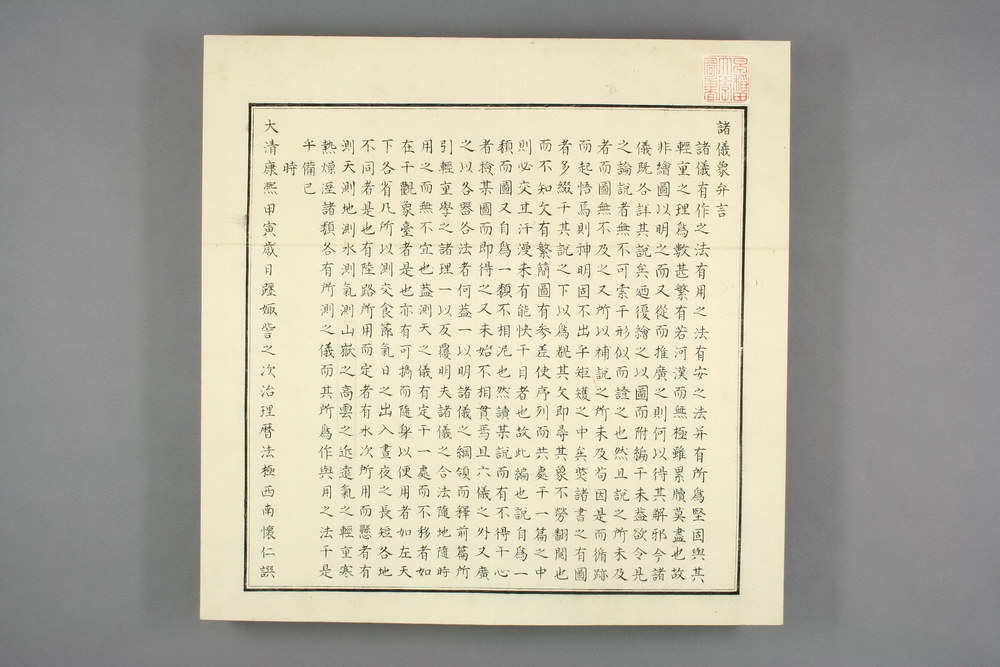 諸儀象弁言
諸儀有作之法有用之法有安之法并有所爲堅固與其
輕重之理爲數甚繁有若河漢而無極雖累牘莫盡也故
非繪圖以明之而又從而推廣之則何以得其解邪今諸
儀既各詳其說矣廼復繪之以圖而附編于末葢欲令見
之論說者無不可索于形似而證之也然且說之所未及
者而圖無不及之又所以補說之所未及苟因是而循跡
而起悟焉則神明固不出乎矩矱之中矣嘗諸書之有圖
者多綴于其說之下以爲觀其文即尋其象不勞翻閱也
而不知文有繁簡圖有參差使序列而共處于一篇之中
則必交互汗漫未有能快于目者也故此編也說自爲一
類而圖又自爲一類不相泥也然讀某說而有不得于心
者撿某圖而即得之又未始不相貫焉且六儀之外又廣
之以各器各法者何葢一以明諸儀之綱領而釋前篇所
引輕重學之諸理一以反覆明夫諸儀之合法隨地隨時
用之而無不宜也葢測天之儀有定于一處而不移者如
在于觀象臺者是也亦有可携而隨身以便用者如在天
下各省凡所以測交食節氣日之出入晝夜之長短各地
不同者是也有陸路所用而定者有水次所用而懸者有
測天測地測水測氣測山嶽之高雲之近遠氣之輕重寒
熱燥溼諸類各有所測之儀而其所爲作與用之法于是
乎備已
時
大清康熙甲寅歲日躔娵訾之次治理曆法極西南懷仁譔